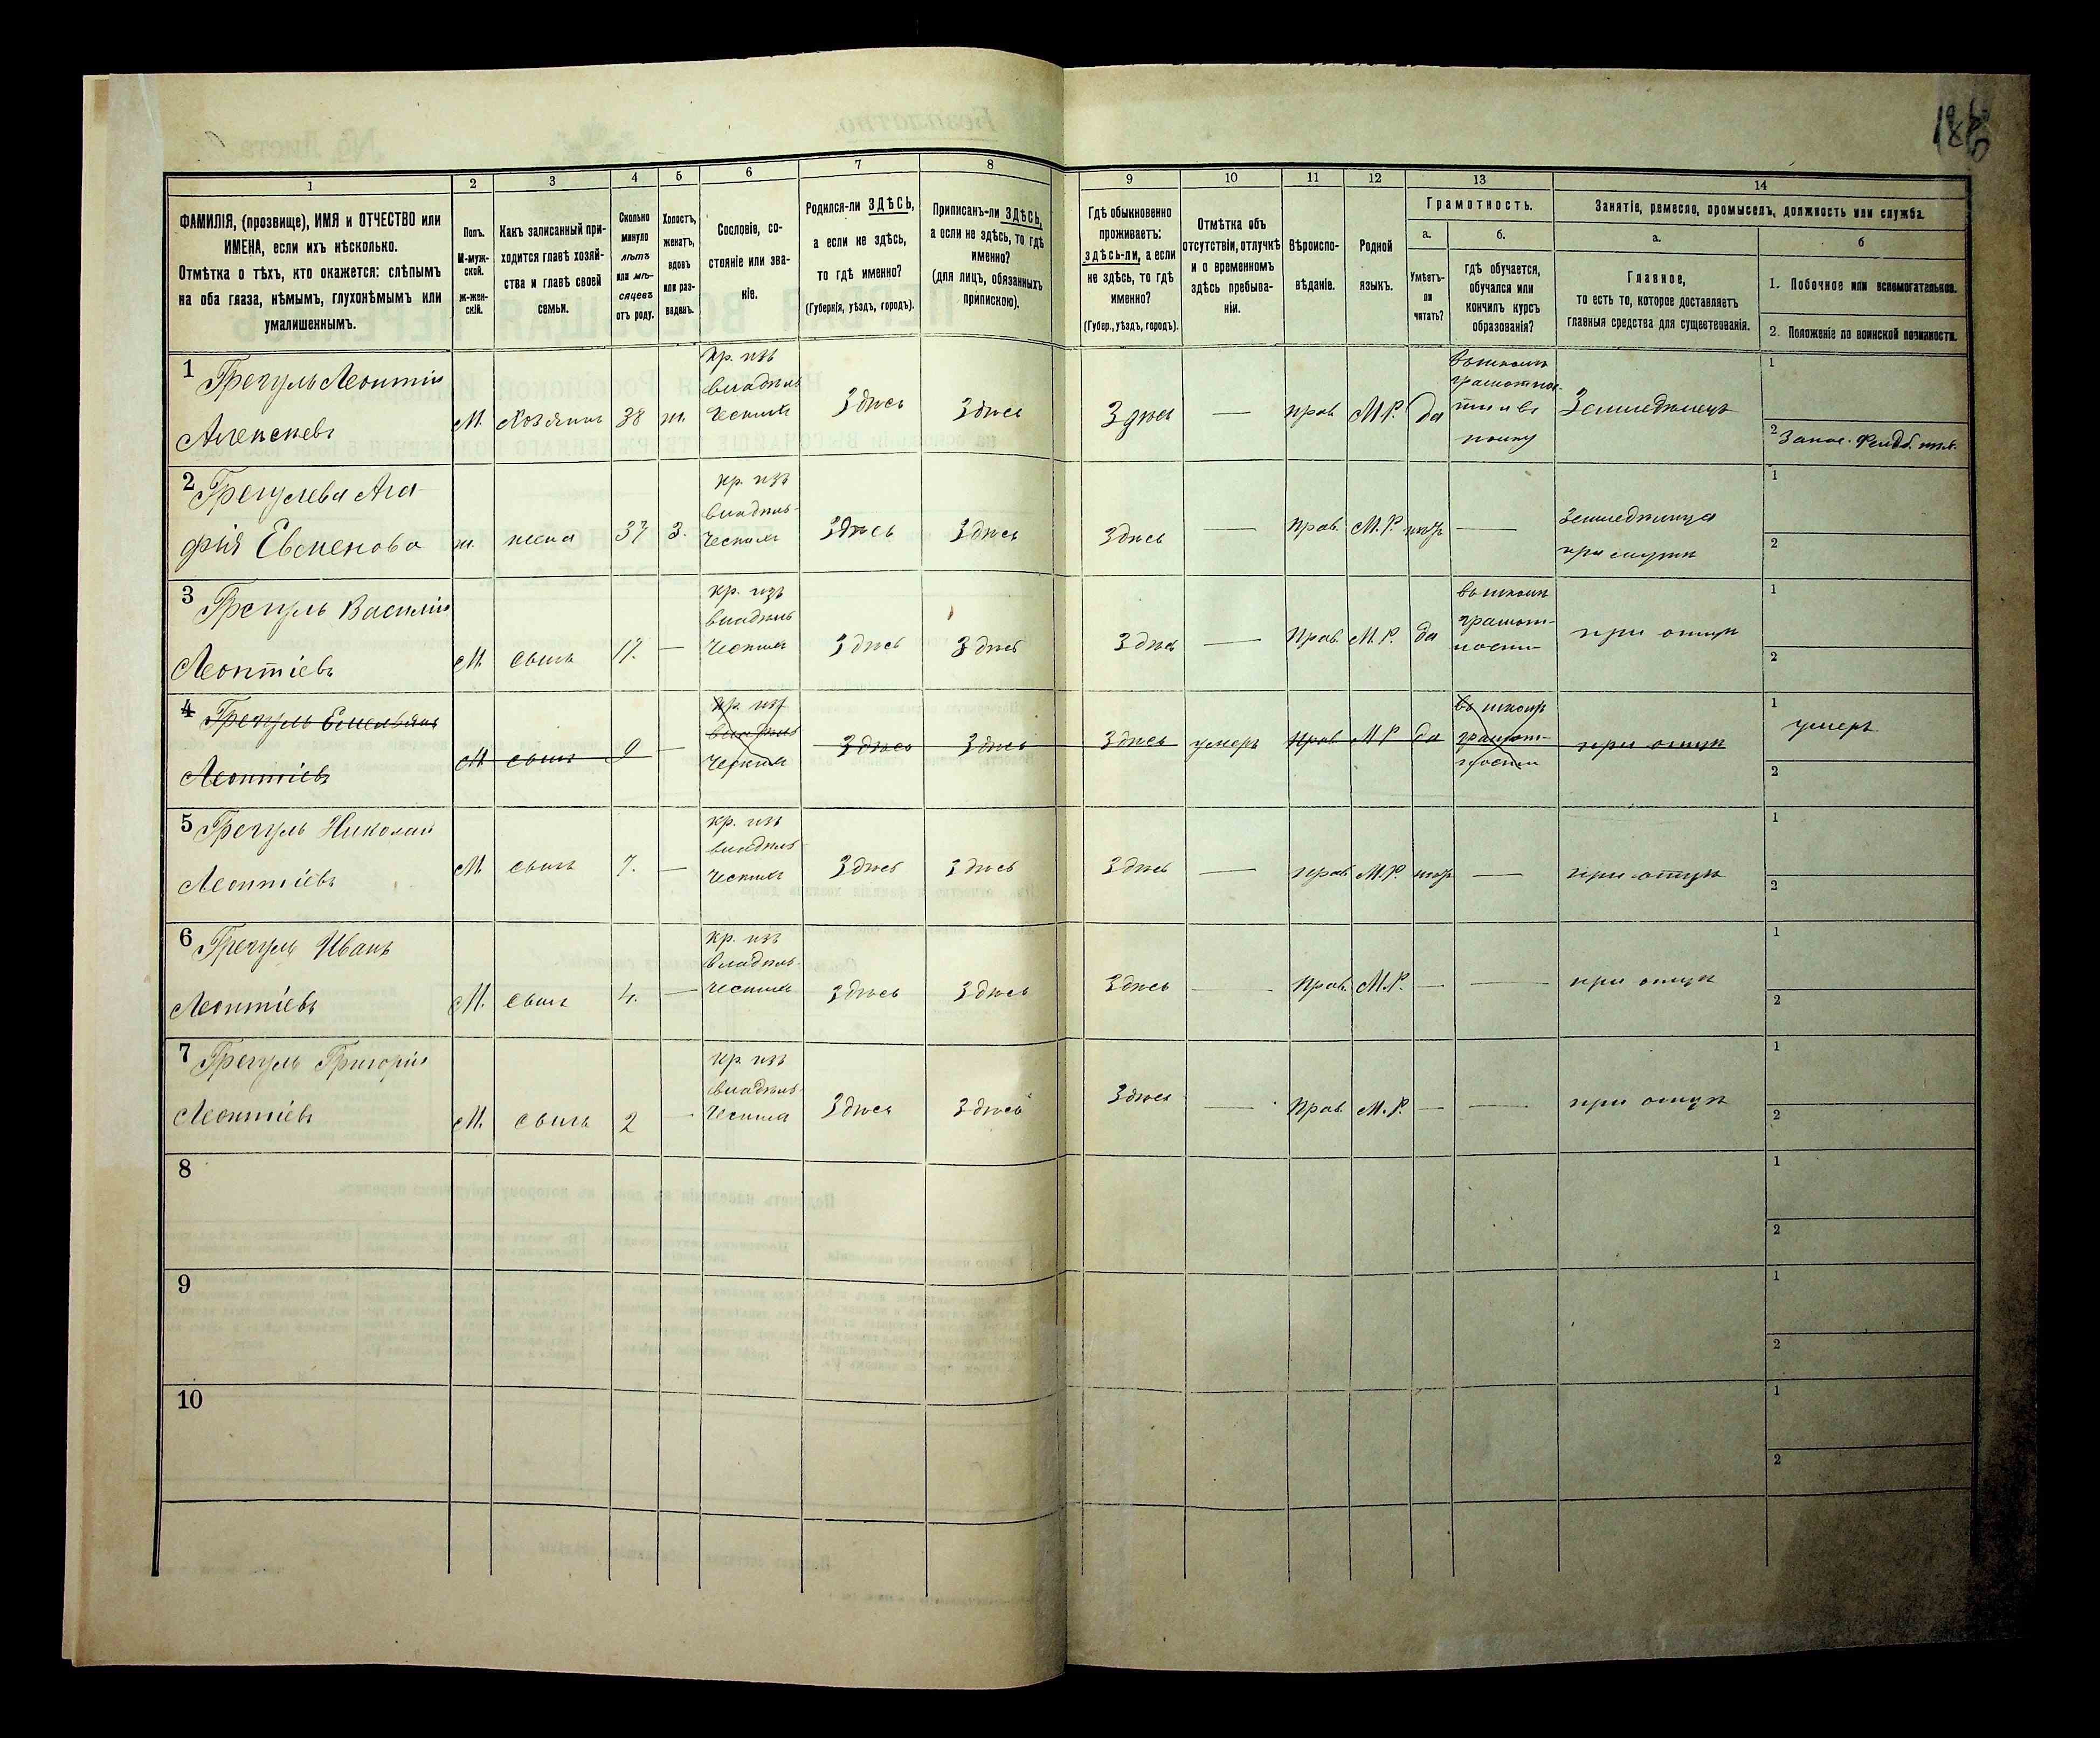 188
1
2
3
4
5
6
7
8
9
10
11
12
13
14
ФАМИЛІЯ, (прозвище), ИМЯ и ОТЧЕСТВО или
ИМЕНА, если ихъ нѣсколько.
Отмѣтка о тѣхъ, кто окажется: слѣпымъ
на оба глаза, нѣмымъ, глухонѣмымъ или
умалишеннымъ.
Полъ.
М-муж-
ской.
ж-жен-
скій.
Какъ записанный при-
ходится главѣ хозяй-
ства и главѣ своей
семьи.
Сколько
минуло
лѣтъ
или мѣ-
сяцевъ
отъ роду.
Холостъ,
женатъ,
вдовъ
или раз-
веденъ.
Сословіе, со-
стояніе или зва-
ніе.
Родился-ли ЗДѢСЬ,
а если не здѣсь,
то гдѣ именно?
(Губернія, уѣздъ, городъ).
Приписанъ-ли ЗДѢСЬ,
а если не здѣсь, то гдѣ
именно?
(для лицъ, обязанныхъ
припискою).
Гдѣ обыкновенно
проживаетъ:
здѣсь-ли, а если
не здѣсь, то гдѣ
именно?
(Губер., уѣздъ, городъ).
Отмѣтка объ
отсутствіи, отлучкѣ
и о временномъ
здѣсь пребыва-
ніи.
Вѣроиспо-
вѣданіе.
Родной
языкъ.
Грамотность.
а.
Умѣетъ-
ли
читать?
б.
гдѣ обучается,
обучался или
кончилъ курсъ
образованія?
Занятіе, ремесло, промыселъ, должность или служба.
а.
Главное,
то есть то, которое доставляетъ
главныя средства для существованія.
б
1. Побочное или вспомогательное.
2. Положеніе по воинской повинности.
1 Гречуль Леонтій
Алексѣевъ
М.
Хозяинъ
38
ж.
кр. изъ
владѣль
ческихъ
Здѣсь
Здѣсь
Здѣсь
—
прав
М.Р.
да
Земледѣлецъ
1
2
2 Гречулева Ага-
фія Евменова
ж.
жена
37
З.
кр. изъ
владѣль-
ческихъ
Здѣсь
Здѣсь
Здѣсь
—
Прав.
М.Р.
нѣтъ
—
Земледѣлица
при мужѣ
1
2
3 Гречуль Василій
Леонтіевъ
М.
сынъ
17.
—
кр. изъ
владѣль
ческихъ
Здѣсь
Здѣсь
Здѣсь
—
Прав.
М.Р.
да
въ школѣ
грамот-
ности
при отцѣ
1
2
4 Гречуль Емельянъ
Леонтіевъ
М
сынъ
9
—
кр. изъ
владѣль
ческихъ
Здѣсь
Здѣсь
Здѣсь
умеръ
Прав
М Р
да
въ школѣ
грамот-
ности
при отцѣ
1
умеръ
2
5 Гречуль Николай
Леонтіевъ
М
сынъ
7.
—
кр. изъ
владѣль-
ческихъ
Здѣсь
Здѣсь
Здѣсь
—
прав
М.Р.
нѣтъ
—
при отцѣ
1
2
6 Гречуль Иванъ
Леонтіевъ
М.
сынъ
4.
—
кр. изъ
владѣль-
ческихъ
Здѣсь
Здѣсь
Здѣсь
—
Прав.
М.Р.
—
—
при отцѣ
1
2
7 Гречуль Григорій
Леонтіевъ
М.
сынъ
2
—
кр. изъ
владѣль-
ческихъ
Здѣсь
Здѣсь
Здѣсь
—
Прав.
М.Р.
—
—
при отцѣ
1
2
8
1
2
9
1
2
10
1
2